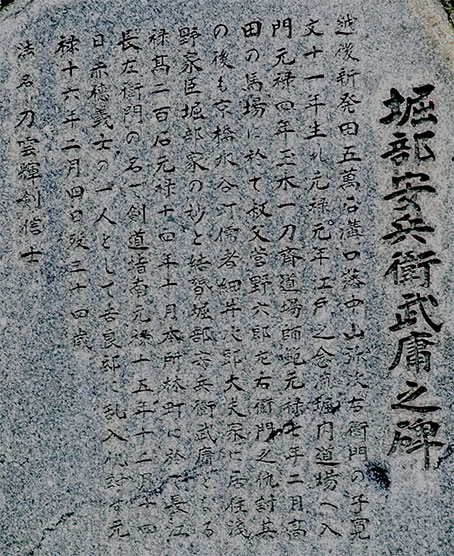 堀部安兵衛武庸之碑
越後新発田五萬石溝口藩中山弥次右衛門の子寛
文十一年生れ元禄元年江戸之念流堀内道場へ入
門元禄四年玉木一刀斉道場師範元禄七年二月高
田の馬場に於て叔父菅野六郎左右衛門之仇討其
の後も京橋水谷町儒者細井次郎大夫家に居住浅
野家臣堀部家の妙と結婚堀部安兵衛武庸となる
禄高二百石元禄十四年十月本所林町に於て長江
長左衛門の名 剣道指南元禄十五年十二月十四
日赤穂義士の一人として吉良邸に乱入仇討す元
禄十六年二月四日歿三十四歳
法名 刀雲輝剣信士